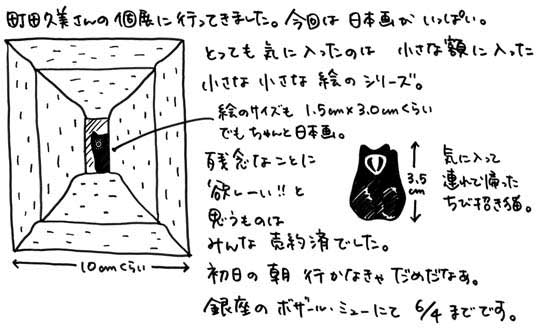 町田久美さんの個展に行ってきました。今回は日本画がいっぱい。
とっても気に入ったのは 小さな額に入った
小さな小さな絵のシリーズ。
絵のサイズも 1.5cm×3.0cmくらい
でもちゃんと日本画。
残念なことに
"欲しーい!!"と
思うものは
みんな 売約済でした。
初日の朝 行かなきゃ だめだなぁ。
銀座の ボザール・ミューにて 6/4 までです。
10cmくらい
3.5cm
気に入って
連れて帰った
ちび招き猫。